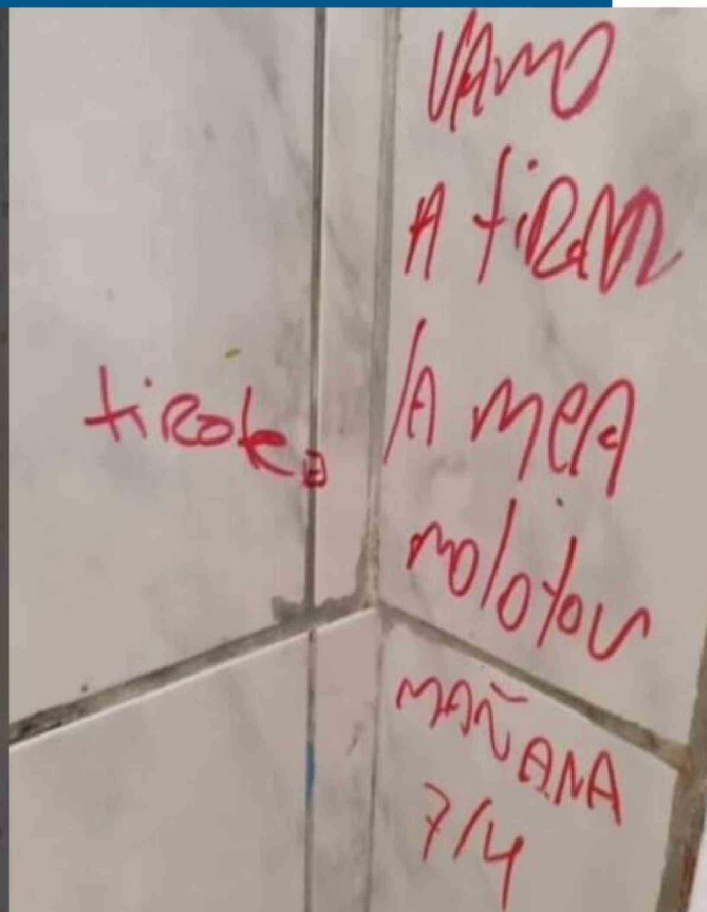 tiroteo
VAMO
A tiRAR
lA meA
molotov
MAÑANA
7/4